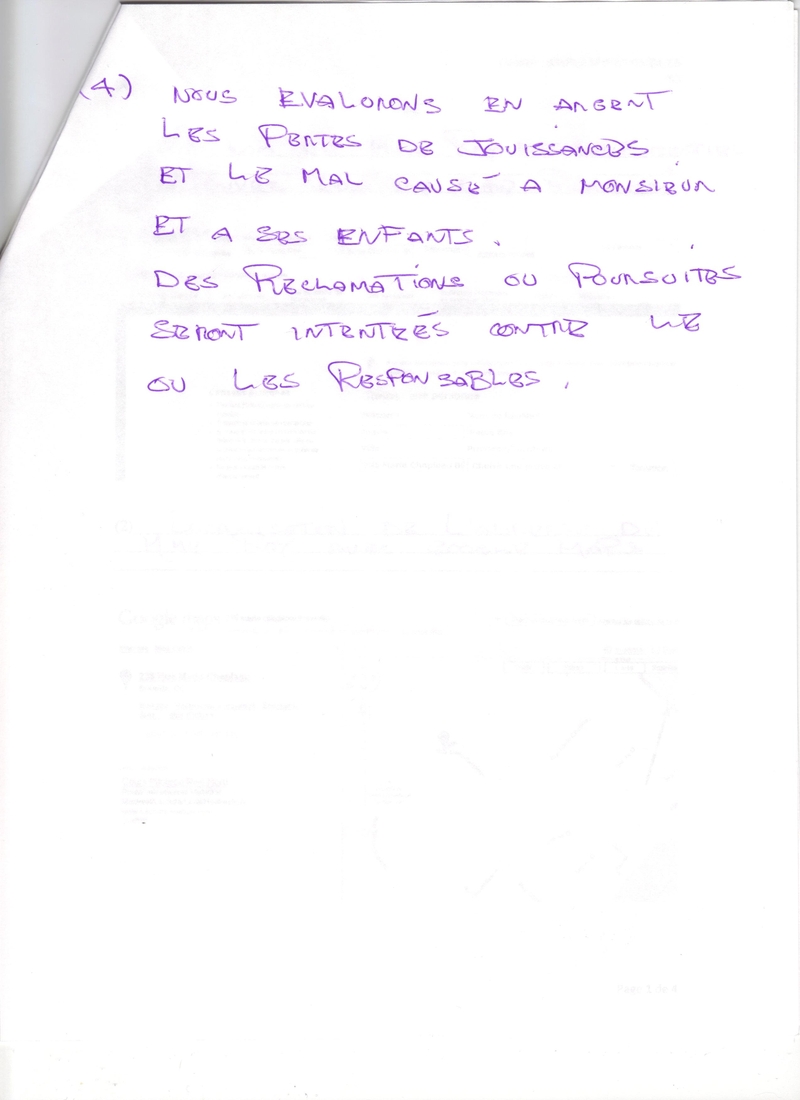 (4) NOUS EVALORONS EN ARGENT
LES PERTES DE JOUISSANCES
ET LE MAL CAUSÉ A MONSIEUR
ET A SES ENFANTS.
DES RECLAMATIONS OU POURSUITES
SERONT INTENTRÉS CONTRE LE
OU LES RESPONSABLES.